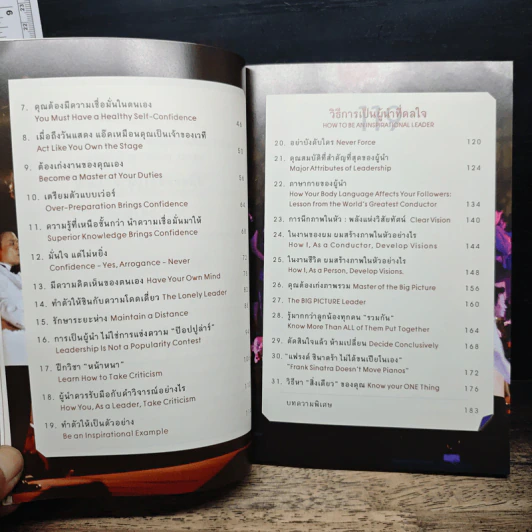 6
7. คุณต้องมีความเชื่อมั่นในตนเอง
You Must Have a Healthy Self-Confidence
8. เมื่อถึงวันแสดง แอ๊คเหมือนคุณเป็นเจ้าของเวที
Act Like You Own the Stage
9. ต้องเก่งงานของคุณเอง
Become a Master at Your Duties
10. เตรียมตัวแบบเว่อร์
Over-Preparation Brings Confidence
11. ความรู้ที่เหนือชั้นกว่า นำความเชื่อมั่นมาให้
Superior Knowledge Brings Confidence
12. มั่นใจ แต่ไม่หยิ่ง
Confidence - Yes, Arrogance - Never
13. มีความคิดเห็นของตนเอง Have Your Own Mind
14. ทำตัวให้ชินกับความโดดเดี่ยว The Lonely Leader
15. รักษาระยะห่าง Maintain a Distance
16. การเป็นผู้นำ ไม่ใช่การแข่งความ "ป๊อปปูล่าร์"
Leadership Is Not a Popularity Contest
17. ฝึกวิชา "หน้าหนา"
Learn How to Take Criticism
18. ผู้นำควรรับมือกับคำวิจารณ์อย่างไร
How You, As a Leader, Take Criticism
19. ทำตัวให้เป็นตัวอย่าง
Be an Inspirational Example
วิธีการเป็นผู้นำที่ดลใจ
HOW TO BE AN INSPIRATIONAL LEADER
20. อย่าบังคับใคร Never Force 120
21. คุณสมบัติที่สำคัญที่สุดของผู้นำ
Major Attributes of Leadership 124
22. ภาษากายของผู้นำ
How Your Body Language Affects Your Followers:
Lesson from the World's Greatest Conductor 134
23. การนึกภาพในหัว : พลังแห่งวิสัยทัศน์ Clear Vision 140
24. ในงานของผม ผมสร้างภาพในหัวอย่างไร
How I, As a Conductor, Develop Visions 144
25. ในงานชีวิต ผมสร้างภาพในหัวอย่างไร
How I, As a Person, Develop Visions. 148
26. คุณต้องเก่งภาพรวม Master of the Big Picture 156
27. The BIG PICTURE Leader 160
28. รู้มากกว่าลูกน้องทุกคน "รวมกัน"
Know More Than ALL of Them Put Together 164
29. ตัดสินใจแล้ว ห้ามเปลี่ยน Decide Conclusively 168
30. "แฟรงค์ ซินาตร้า ไม่ได้ขนเปียโนเอง"
"Frank Sinatra Doesn't Move Pianos" 172
31. วิธีหา "สิ่งเดียว" ของคุณ Know your ONE Thing 176
บทความพิเศษ 183